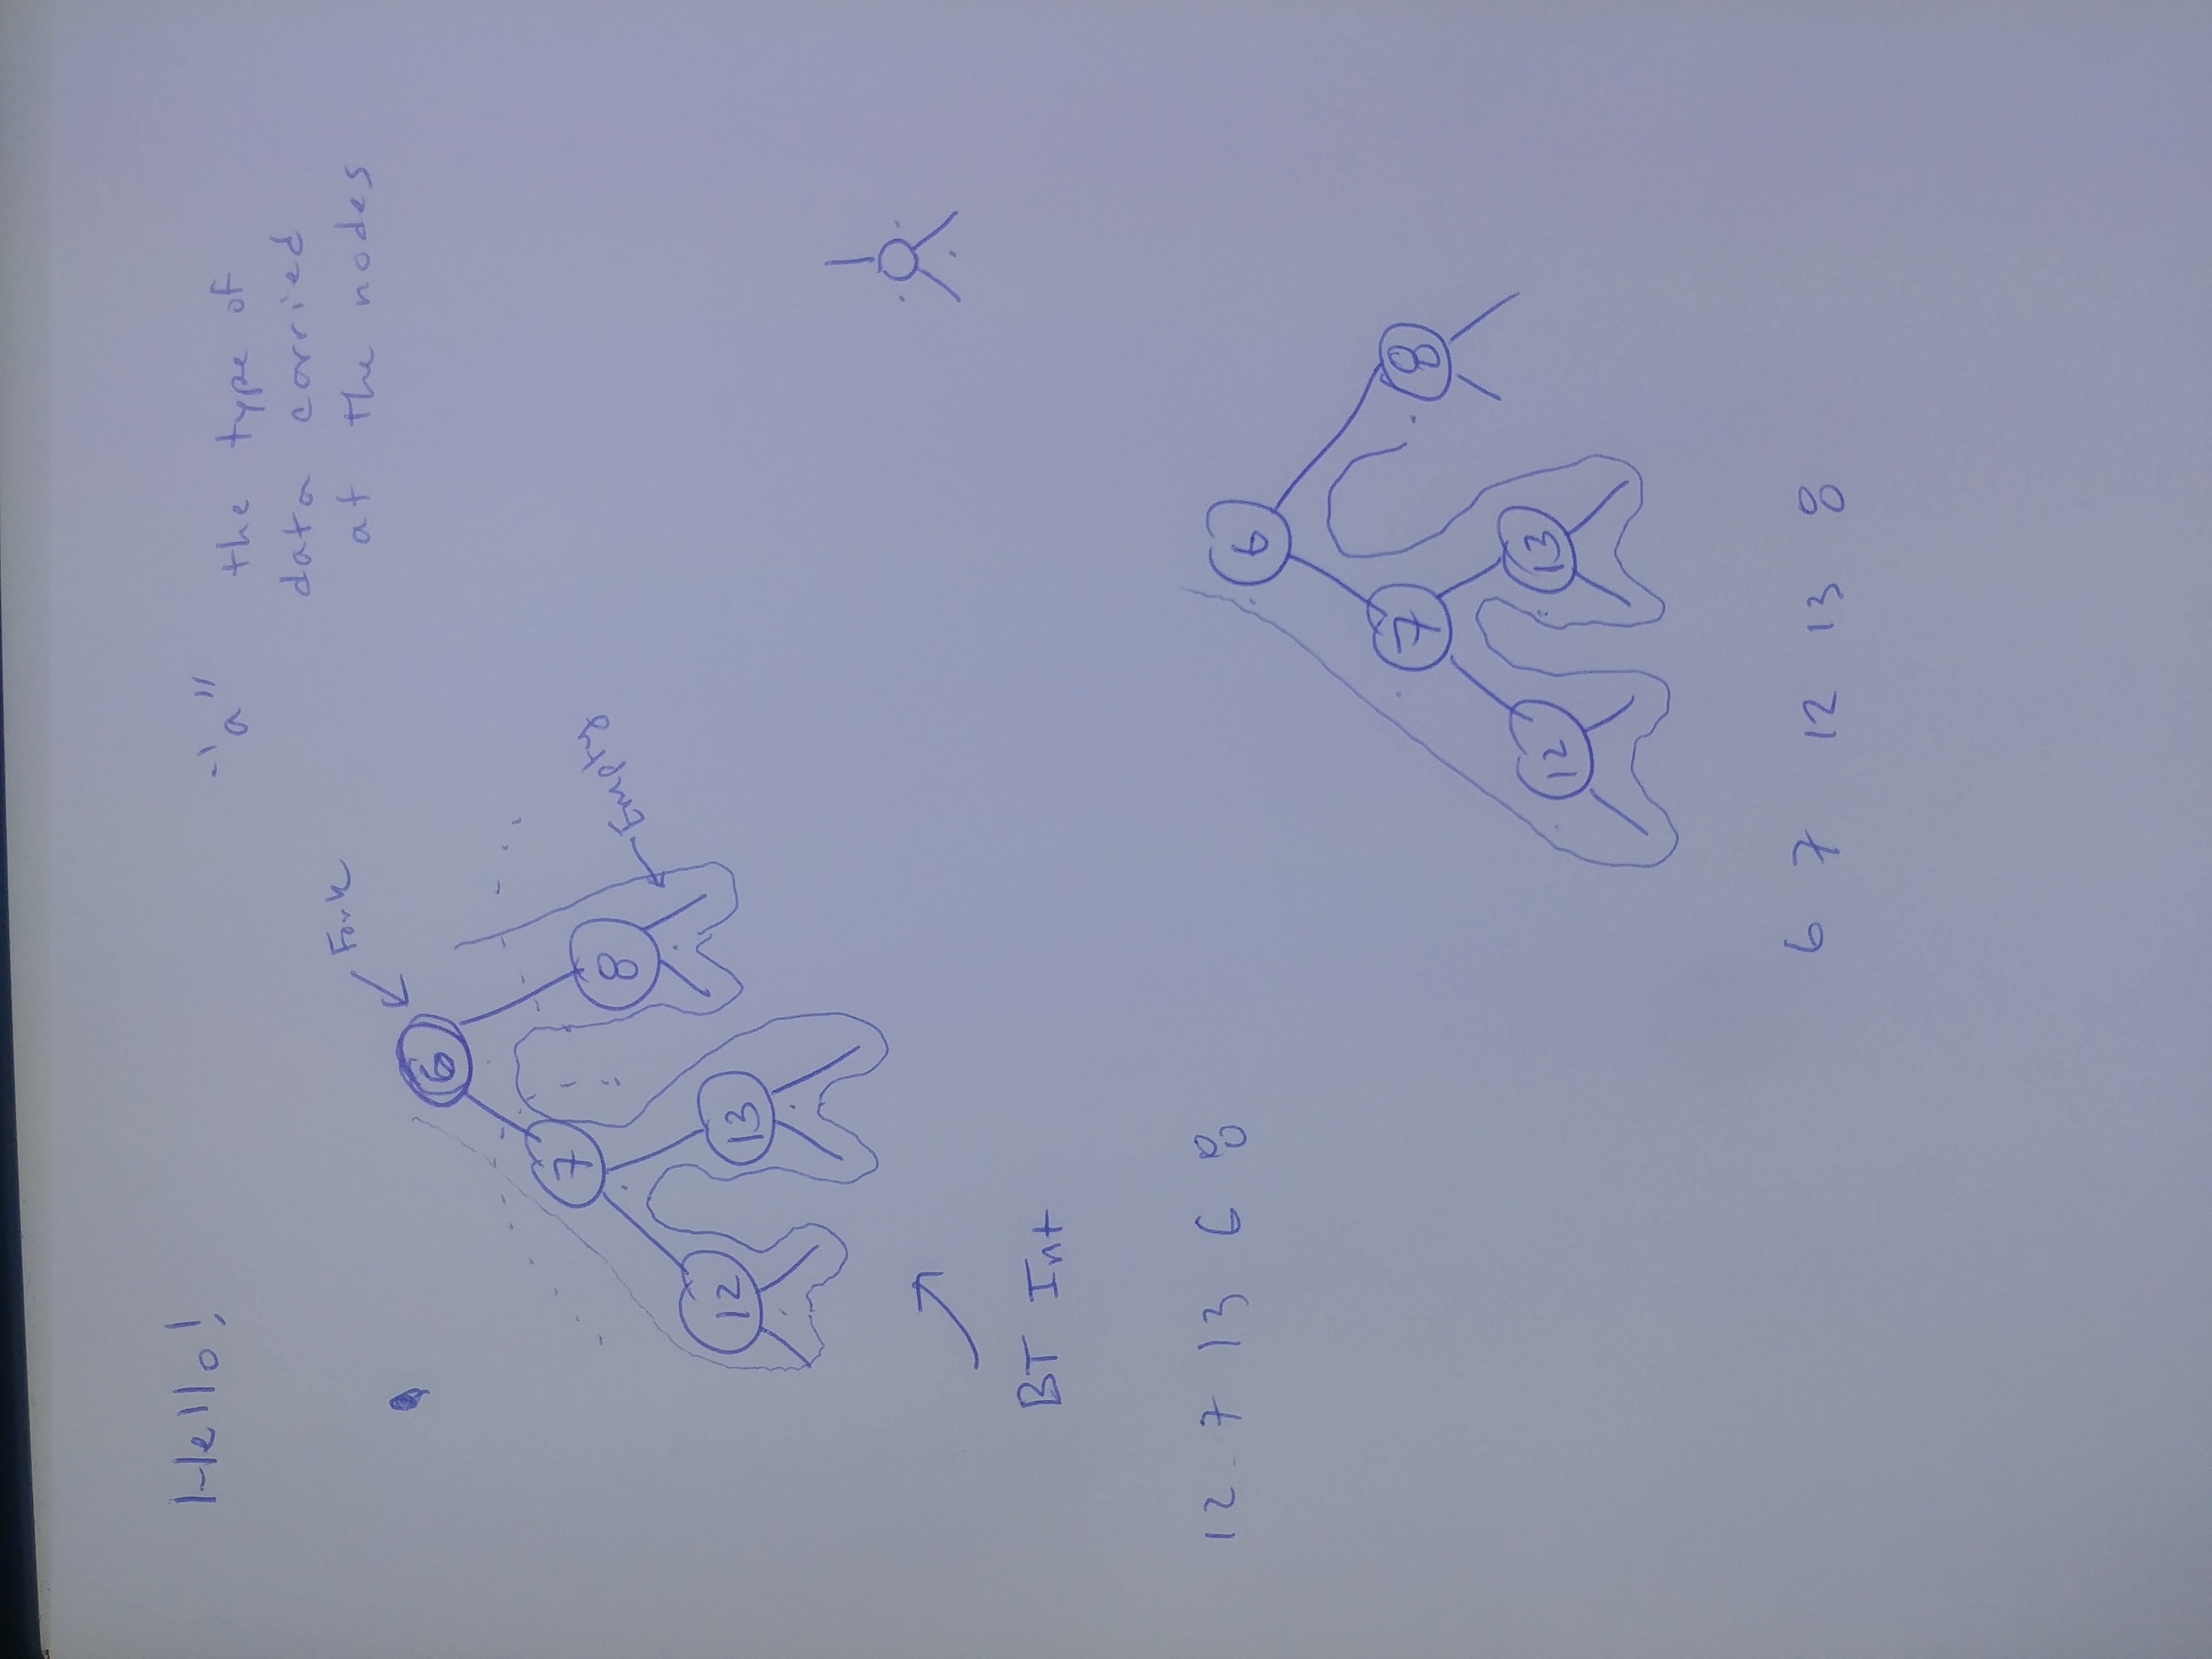 Hello!
"a" the type of
data carried
at the nodes
Fork
6
7
8
Empty
12
13
BT Int
12 7 13 6 8
6
7
8
12
13
6 7 12 13 8